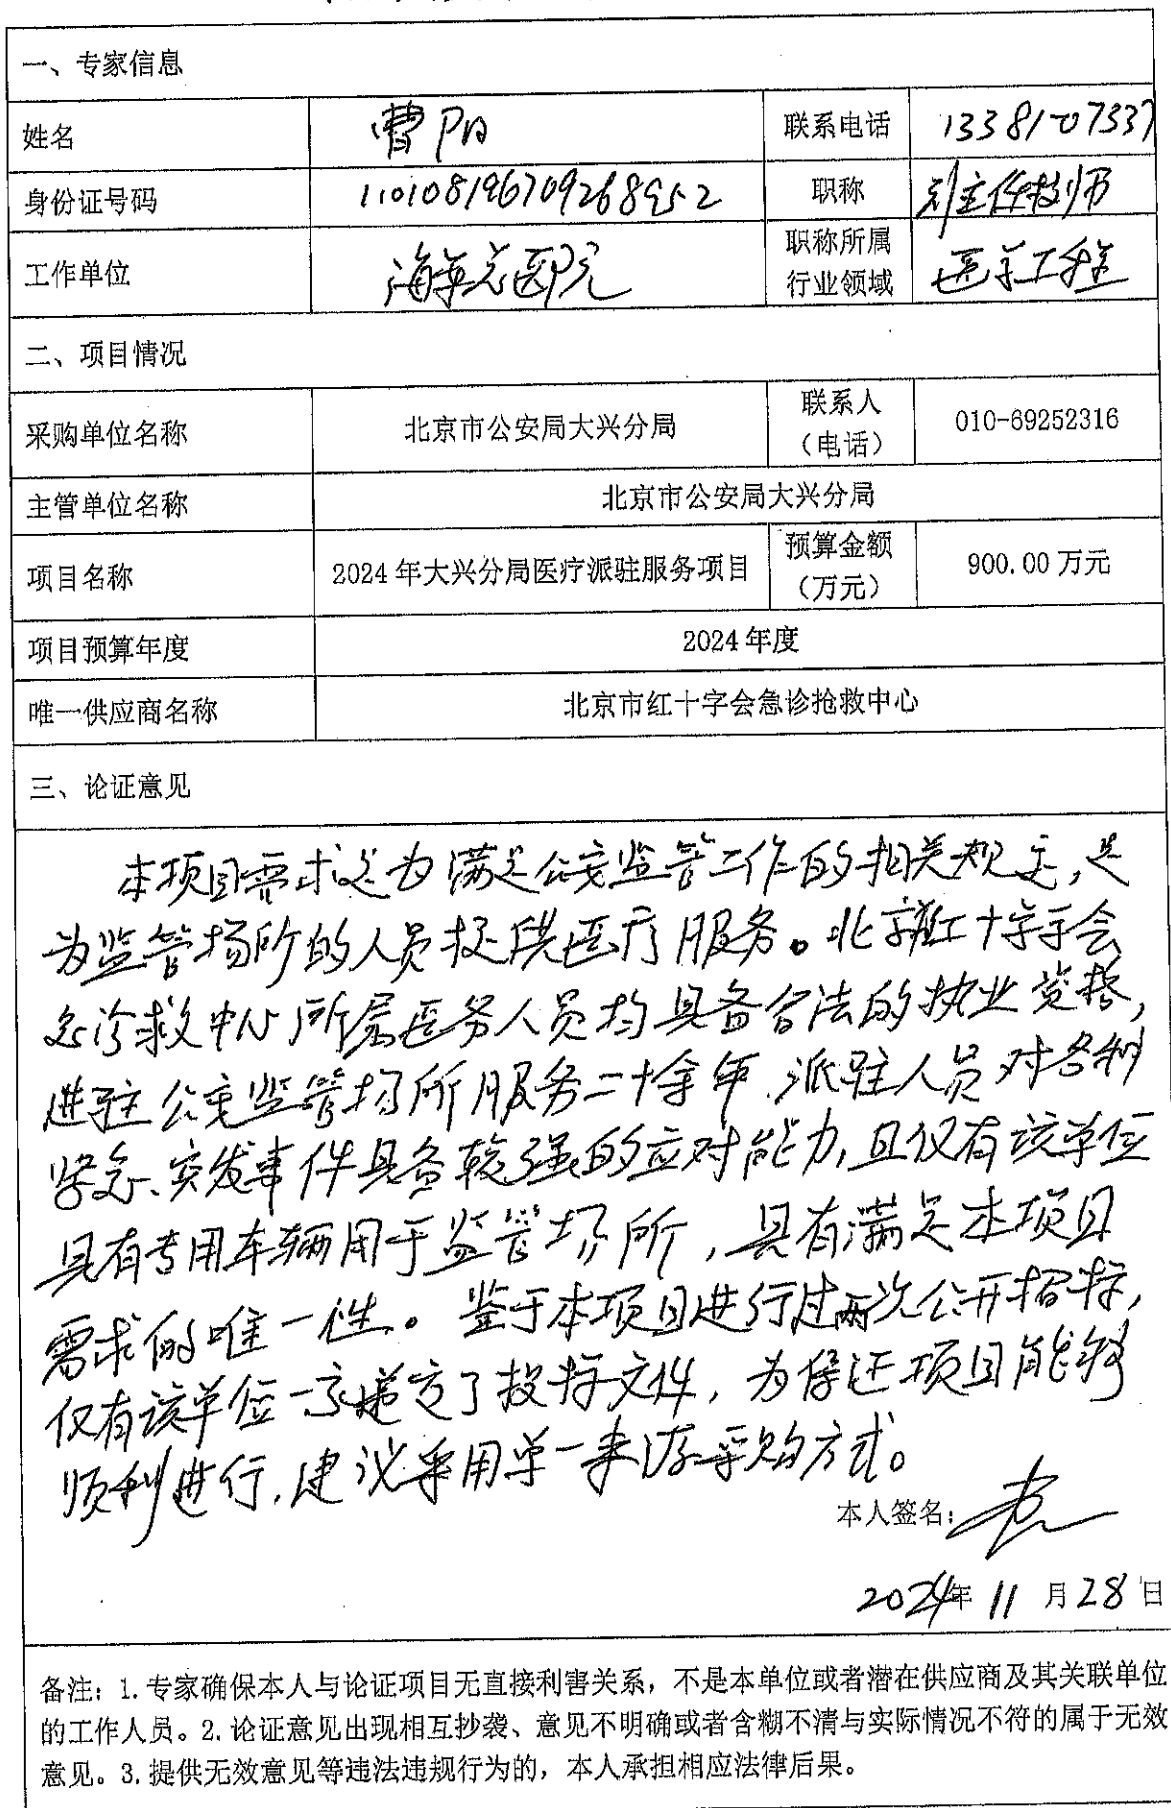 一、专家信息
姓名 曹阳 联系电话 13381707337
身份证号码 职称 副主任技师
工作单位 海军总医院 职称所属行业领域 医学工程
二、项目情况
采购单位名称 北京市公安局大兴分局 联系人（电话） 010-69252316
主管单位名称 北京市公安局大兴分局
项目名称 2024年大兴分局医疗派驻服务项目 预算金额（万元） 900.00万元
项目预算年度 2024年度
唯一供应商名称 北京市红十字会急诊抢救中心
三、论证意见
本项目需求是为满足公安监管工作的相关规定,是
为监管场所的人员提供医疗服务。北京红十字会
急诊救中心所属医务人员均具备合法的执业资格,
进驻公安监管场所服务二十余年,派驻人员对各种
紧急、突发事件具备较强的应对能力,且仅有该单位
具有专用车辆用于监管场所,具有满足本项目
需求的唯一性。鉴于本项目进行过两次公开招标,
仅有该单位一家递交了投标文件,为保证项目能够
顺利进行,建议采用单一来源采购方式。
本人签名:
2024年11月28日
备注：1.专家确保本人与论证项目无直接利害关系，不是本单位或者潜在供应商及其关联单位
的工作人员。2.论证意见出现相互抄袭、意见不明确或者含糊不清与实际情况不符的属于无效
意见。3.提供无效意见等违法违规行为的，本人承担相应法律后果。